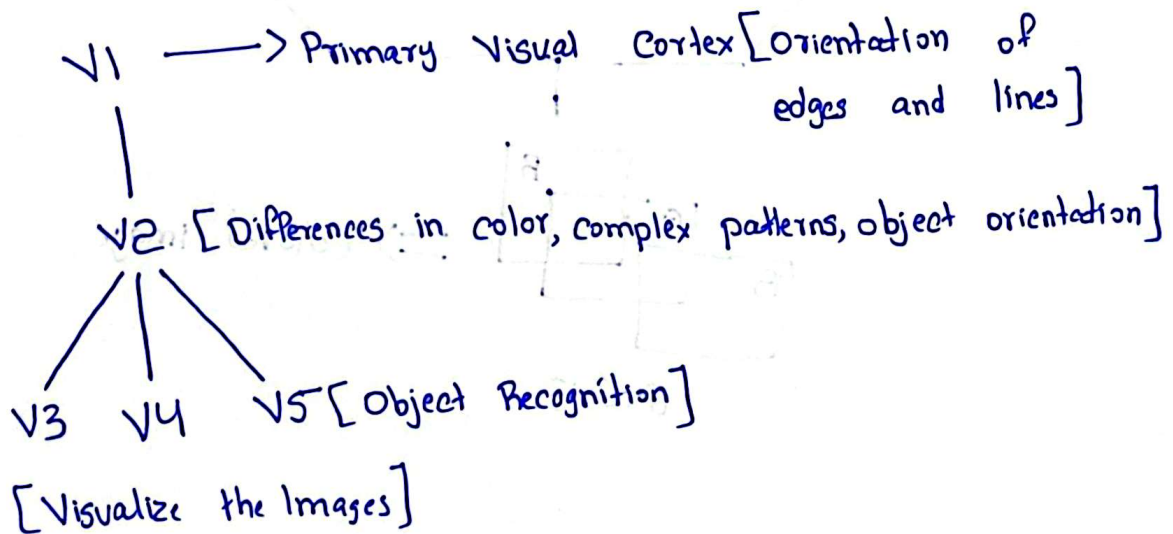 V1 → Primary Visual Cortex [Orientation of
edges and lines]
V2 [Differences in color, complex patterns, object orientation]
V3 V4 V5 [Object Recognition]
[Visualize the Images]